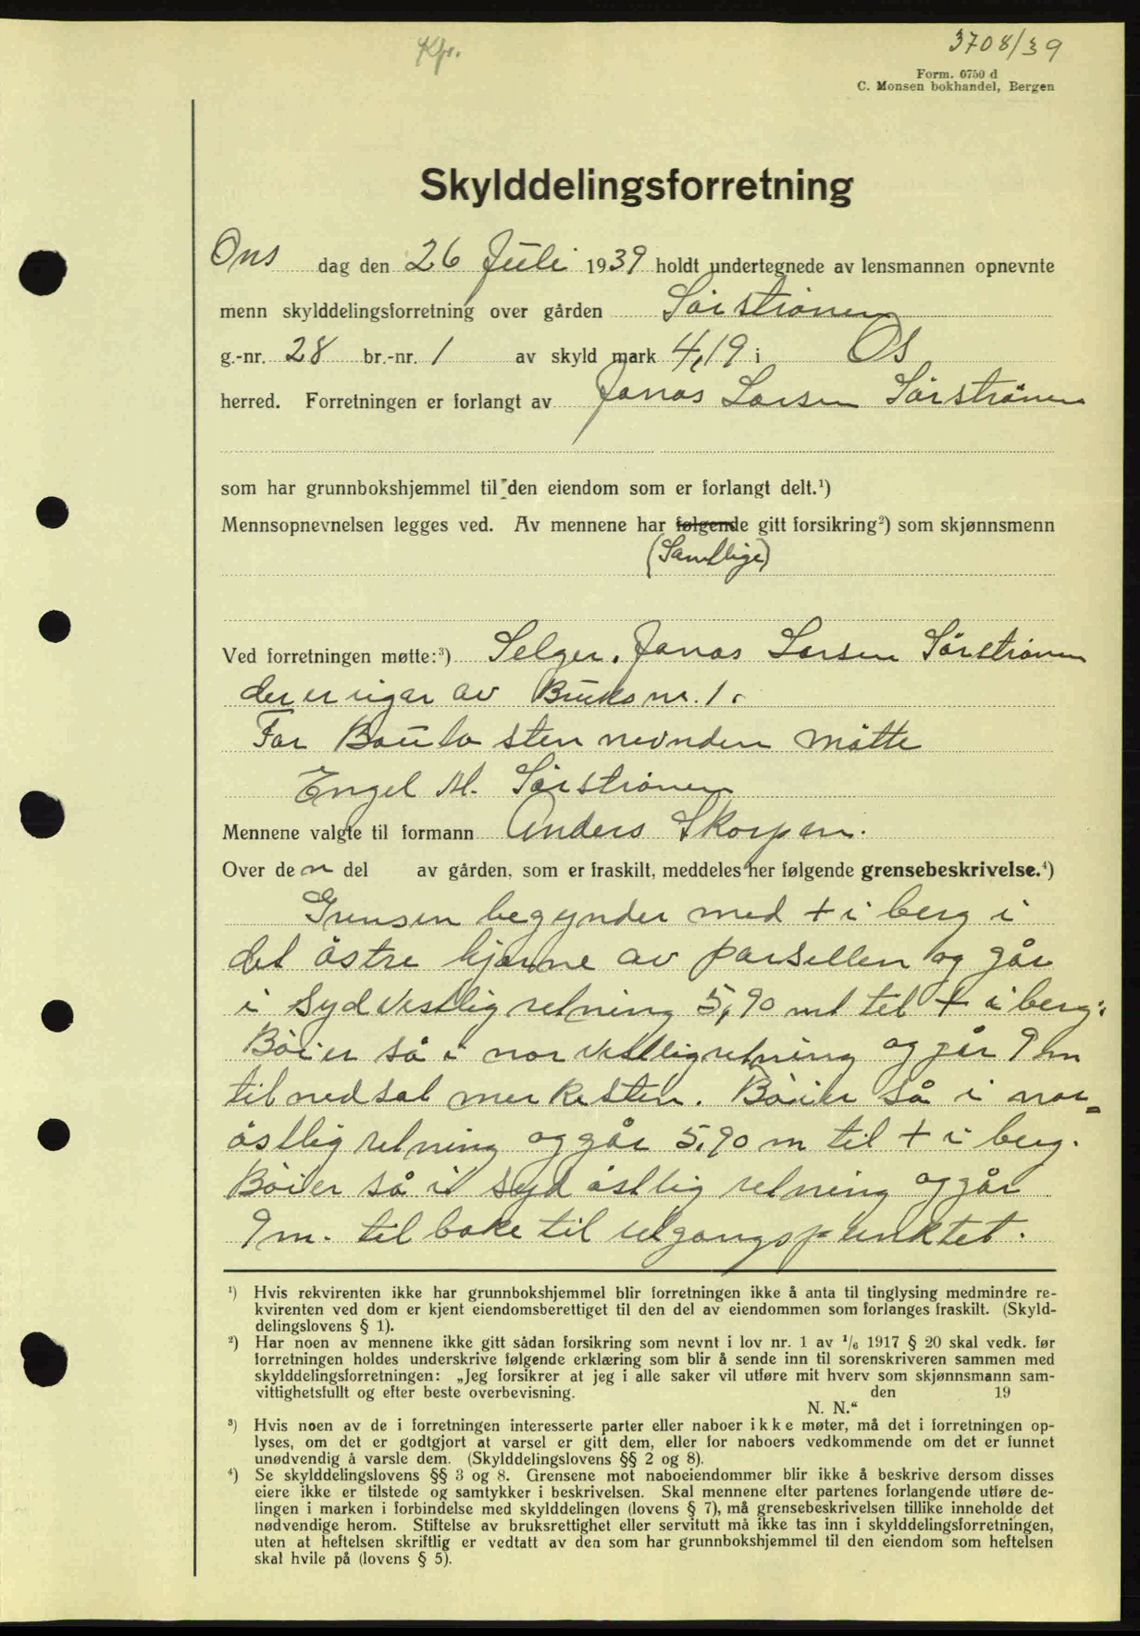 Kfr.
3708/39
Form. 0750 d
C. Monsen bokhandel, Bergen
Skylddelingsforretning
Ons dag den 26 Juli 1939 holdt undertegnede av lensmannen opnevnte
menn skylddelingsforretning over gården Sörströnen
g.-nr. 28 br.-nr. 1 av skyld mark 4,19 i Os
herred. Forretningen er forlangt av Jonas Larsen Sörströnen
som har grunnbokshjemmel til den eiendom som er forlangt delt.¹)
Mennsopnevnelsen legges ved. Av mennene har følgende gitt forsikring²) som skjønnsmenn
(Samtlige)
Ved forretningen møtte:³) Selger. Jonas Larsen Sörströnen
der er eigar av Bruks nr. 1.
For Bauta sten nevnden mötte
Engel M. Sörströnen
Mennene valgte til formann Anders Skorpen.
Over den del av gården, som er fraskilt, meddeles her følgende grensebeskrivelse.⁴)
Grensen begynder med + i berg i
det östre hjørne av parsellen og går
i Sydvestlig retning 5,90 mt til + i berg.
Böier så i norvestlig retning og går 9 m
til nedsat merkesten. Böier så i nor=
östlig retning og går 5,90 m til + i berg.
Böier så i sydöstlig retning og går
9 m. tilbake til utgangspunktet.
¹) Hvis rekvirenten ikke har grunnbokshjemmel blir forretningen ikke å anta til tinglysing medmindre re-
kvirenten ved dom er kjent eiendomsberettiget til den del av eiendommen som forlanges fraskilt. (Skyld-
delingslovens § 1).
²) Har noen av mennene ikke gitt sådan forsikring som nevnt i lov nr. 1 av 1/6 1917 § 20 skal vedk. før
forretningen holdes underskrive følgende erklæring som blir å sende inn til sorenskriveren sammen med
skylddelingsforretningen: „Jeg forsikrer at jeg i alle saker vil utføre mit hverv som skjønnsmann sam-
vittighetsfullt og efter beste overbevisning. den 19
N. N.“
³) Hvis noen av de i forretningen interesserte parter eller naboer ikke møter, må det i forretningen op-
lyses, om det er godtgjort at varsel er gitt dem, eller for naboers vedkommende om det er funnet
unødvendig å varsle dem. (Skylddelingslovens §§ 2 og 8).
⁴) Se skylddelingslovens §§ 3 og 8. Grensene mot naboeiendommer blir ikke å beskrive dersom disses
eiere ikke er tilstede og samtykker i beskrivelsen. Skal mennene efter partenes forlangende utføre de-
lingen i marken i forbindelse med skylddelingen (lovens § 7), må grensebeskrivelsen tillike inneholde det
nødvendige herom. Stiftelse av bruksrettighet eller servitutt må ikke tas inn i skylddelingsforretningen,
uten at heftelsen skriftlig er vedtatt av den som har grunnbokshjemmel til den eiendom som heftelsen
skal hvile på (lovens § 5).